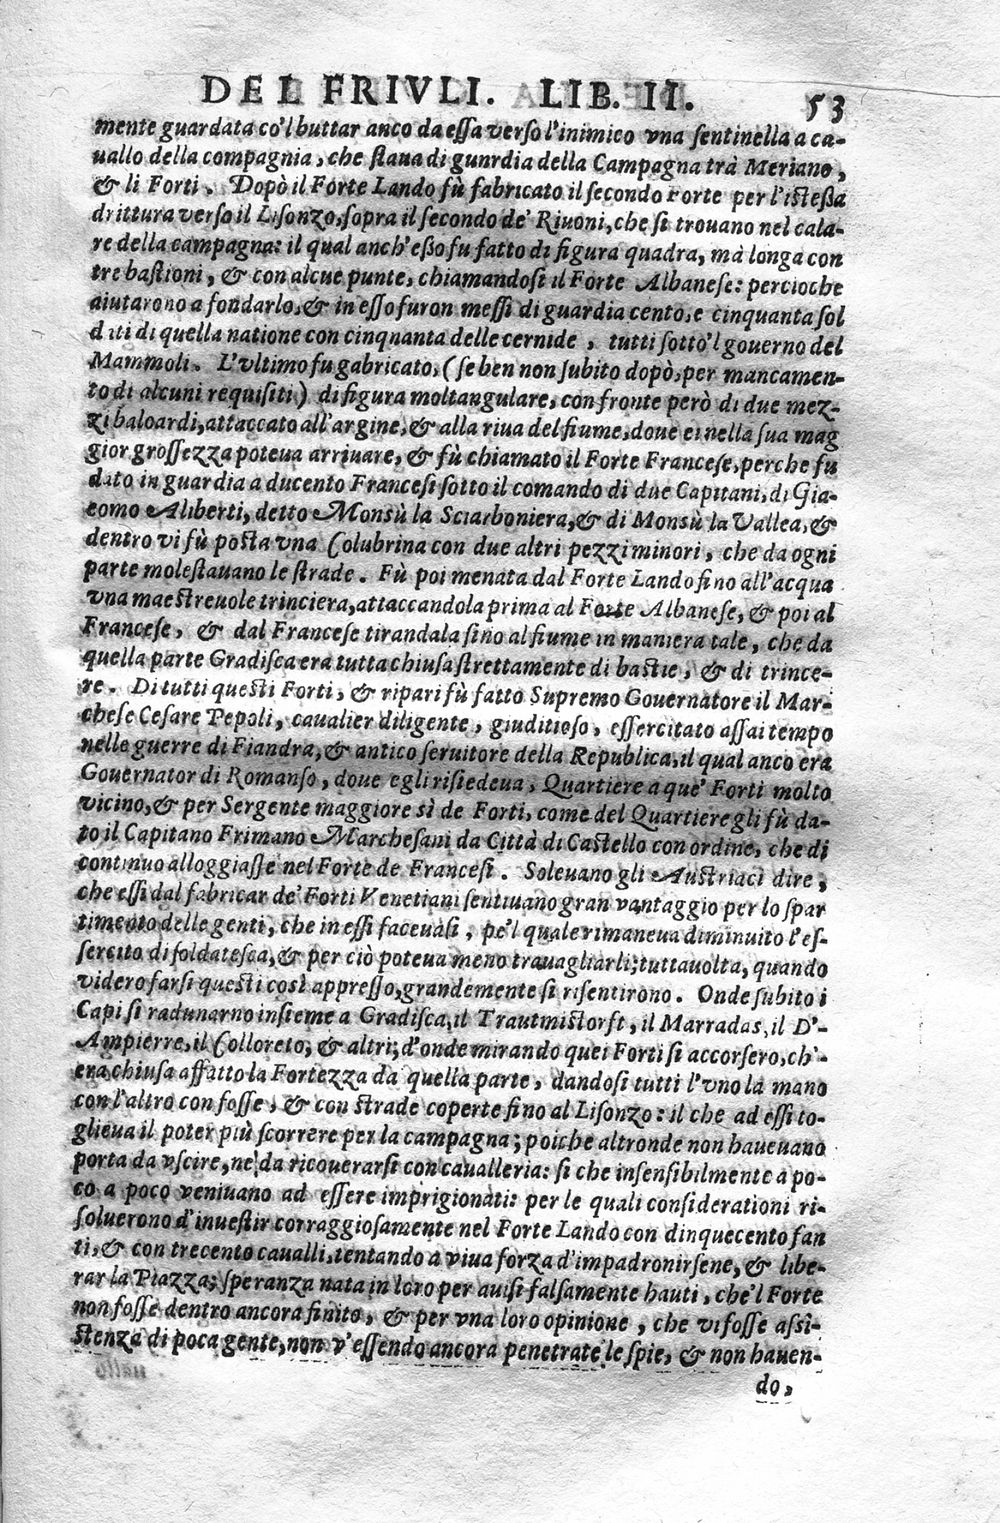 DEL FRIVLI. LIB. II. 53
mente guardata co'l buttar anco da essa verso l'inimico vna sentinella a ca-
uallo della compagnia, che staua di gunrdia della Campagna trà Meriano,
& li Forti. Dopò il Forte Lando fù fabricato il secondo Forte per l'istessa
drittura verso il Lisonzo, sopra il secondo de' Riuoni, che si trouano nel cala-
re della campagna: il qual anch'esso fu fatto di figura quadra, mà longa con
tre bastioni, & con alcue punte, chiamandosi il Forte Albanese: percioche
aiutarono a fondarlo, & in esso furon messi di guardia cento, e cinquanta sol
dati di quella natione con cinquanta delle cernide, tutti sotto'l gouerno del
Mammoli. L'vltimo fu gabricato, (se ben non subito dopò, per mancamen-
to di alcuni requisiti) di figura moltangulare, con fronte però di due mez-
zi baloardi, attaccato all'argine, & alla riua del fiume, doue ei nella sua mag
gior grossezza poteua arriuare, & fù chiamato il Forte Francese, perche fu
dato in guardia a ducento Francesi sotto il comando di due Capitani, di Gia-
como Aliberti, detto Monsù la Sciarboniera, & di Monsù la Vallea, &
dentro vi fù posta vna Colubrina con due altri pezzi minori, che da ogni
parte molestauano le strade. Fù poi menata dal Forte Lando fino all'acqua
vna maestreuole trinciera, attaccandola prima al Forte Albanese, & poi al
Francese, & dal Francese tirandala sino al fiume in maniera tale, che da
quella parte Gradisca era tutta chiusa strettamente di bastie, & di trince-
re. Di tutti questi Forti, & ripari fù fatto Supremo Gouernatore il Mar-
chese Cesare Pepoli, caualier diligente, giuditioso, essercitato assai tempo
nelle guerre di Fiandra, & antico seruitore della Republica, il qual anco era
Gouernator di Romanso, doue egli risiedeua, Quartiere a que' Forti molto
vicino, & per Sergente maggiore sì de Forti, come del Quartiere gli fù da-
to il Capitano Frimano Marchesani da Città di Castello con ordine, che di
continuo alloggiasse nel Forte de Francesi. Soleuano gli Austriaci dire,
che essi dal fabricar de' Forti Venetiani sentiuano gran vantaggio per lo spar
timento delle genti, che in essi faceuasi, pe'l quale rimaneua diminuito l'es-
sercito di soldatesca, & per ciò poteua meno trauagliarli; tuttauolta, quando
videro farsi questi così appresso, grandemente si risentirono. Onde subito i
Capi si radunarno insieme a Gradisca, il Trautmistorft, il Marradas, il D'-
Ampierre, il Colloreto, & altri; d'onde mirando quei Forti si accorsero, ch'-
era chiusa affatto la Fortezza da quella parte, dandosi tutti l'vno la mano
con l'altro con fosse, & con strade coperte fino al Lisonzo: il che ad essi to-
glieua il poter più scorrere per la campagna; poiche altronde non haueuano
porta da vscire, ne da ricouerarsi con caualleria: si che insensibilmente a po-
co a poco veniuano ad essere imprigionati: per le quali considerationi ri-
soluerono d'inuestir corraggiosamente nel Forte Lando con dinquecento fan
ti, & con trecento caualli, tentando a viua forza d'impadronirsene, & libe-
rar la Piazza; speranza nata in loro per auisi falsamente hauti, che'l Forte
non fosse dentro ancora finito, & per vna loro opinione, che vi fosse assi-
stenza di poca gente, non v'essendo ancora penetrate le spie, & non hauen-
do,